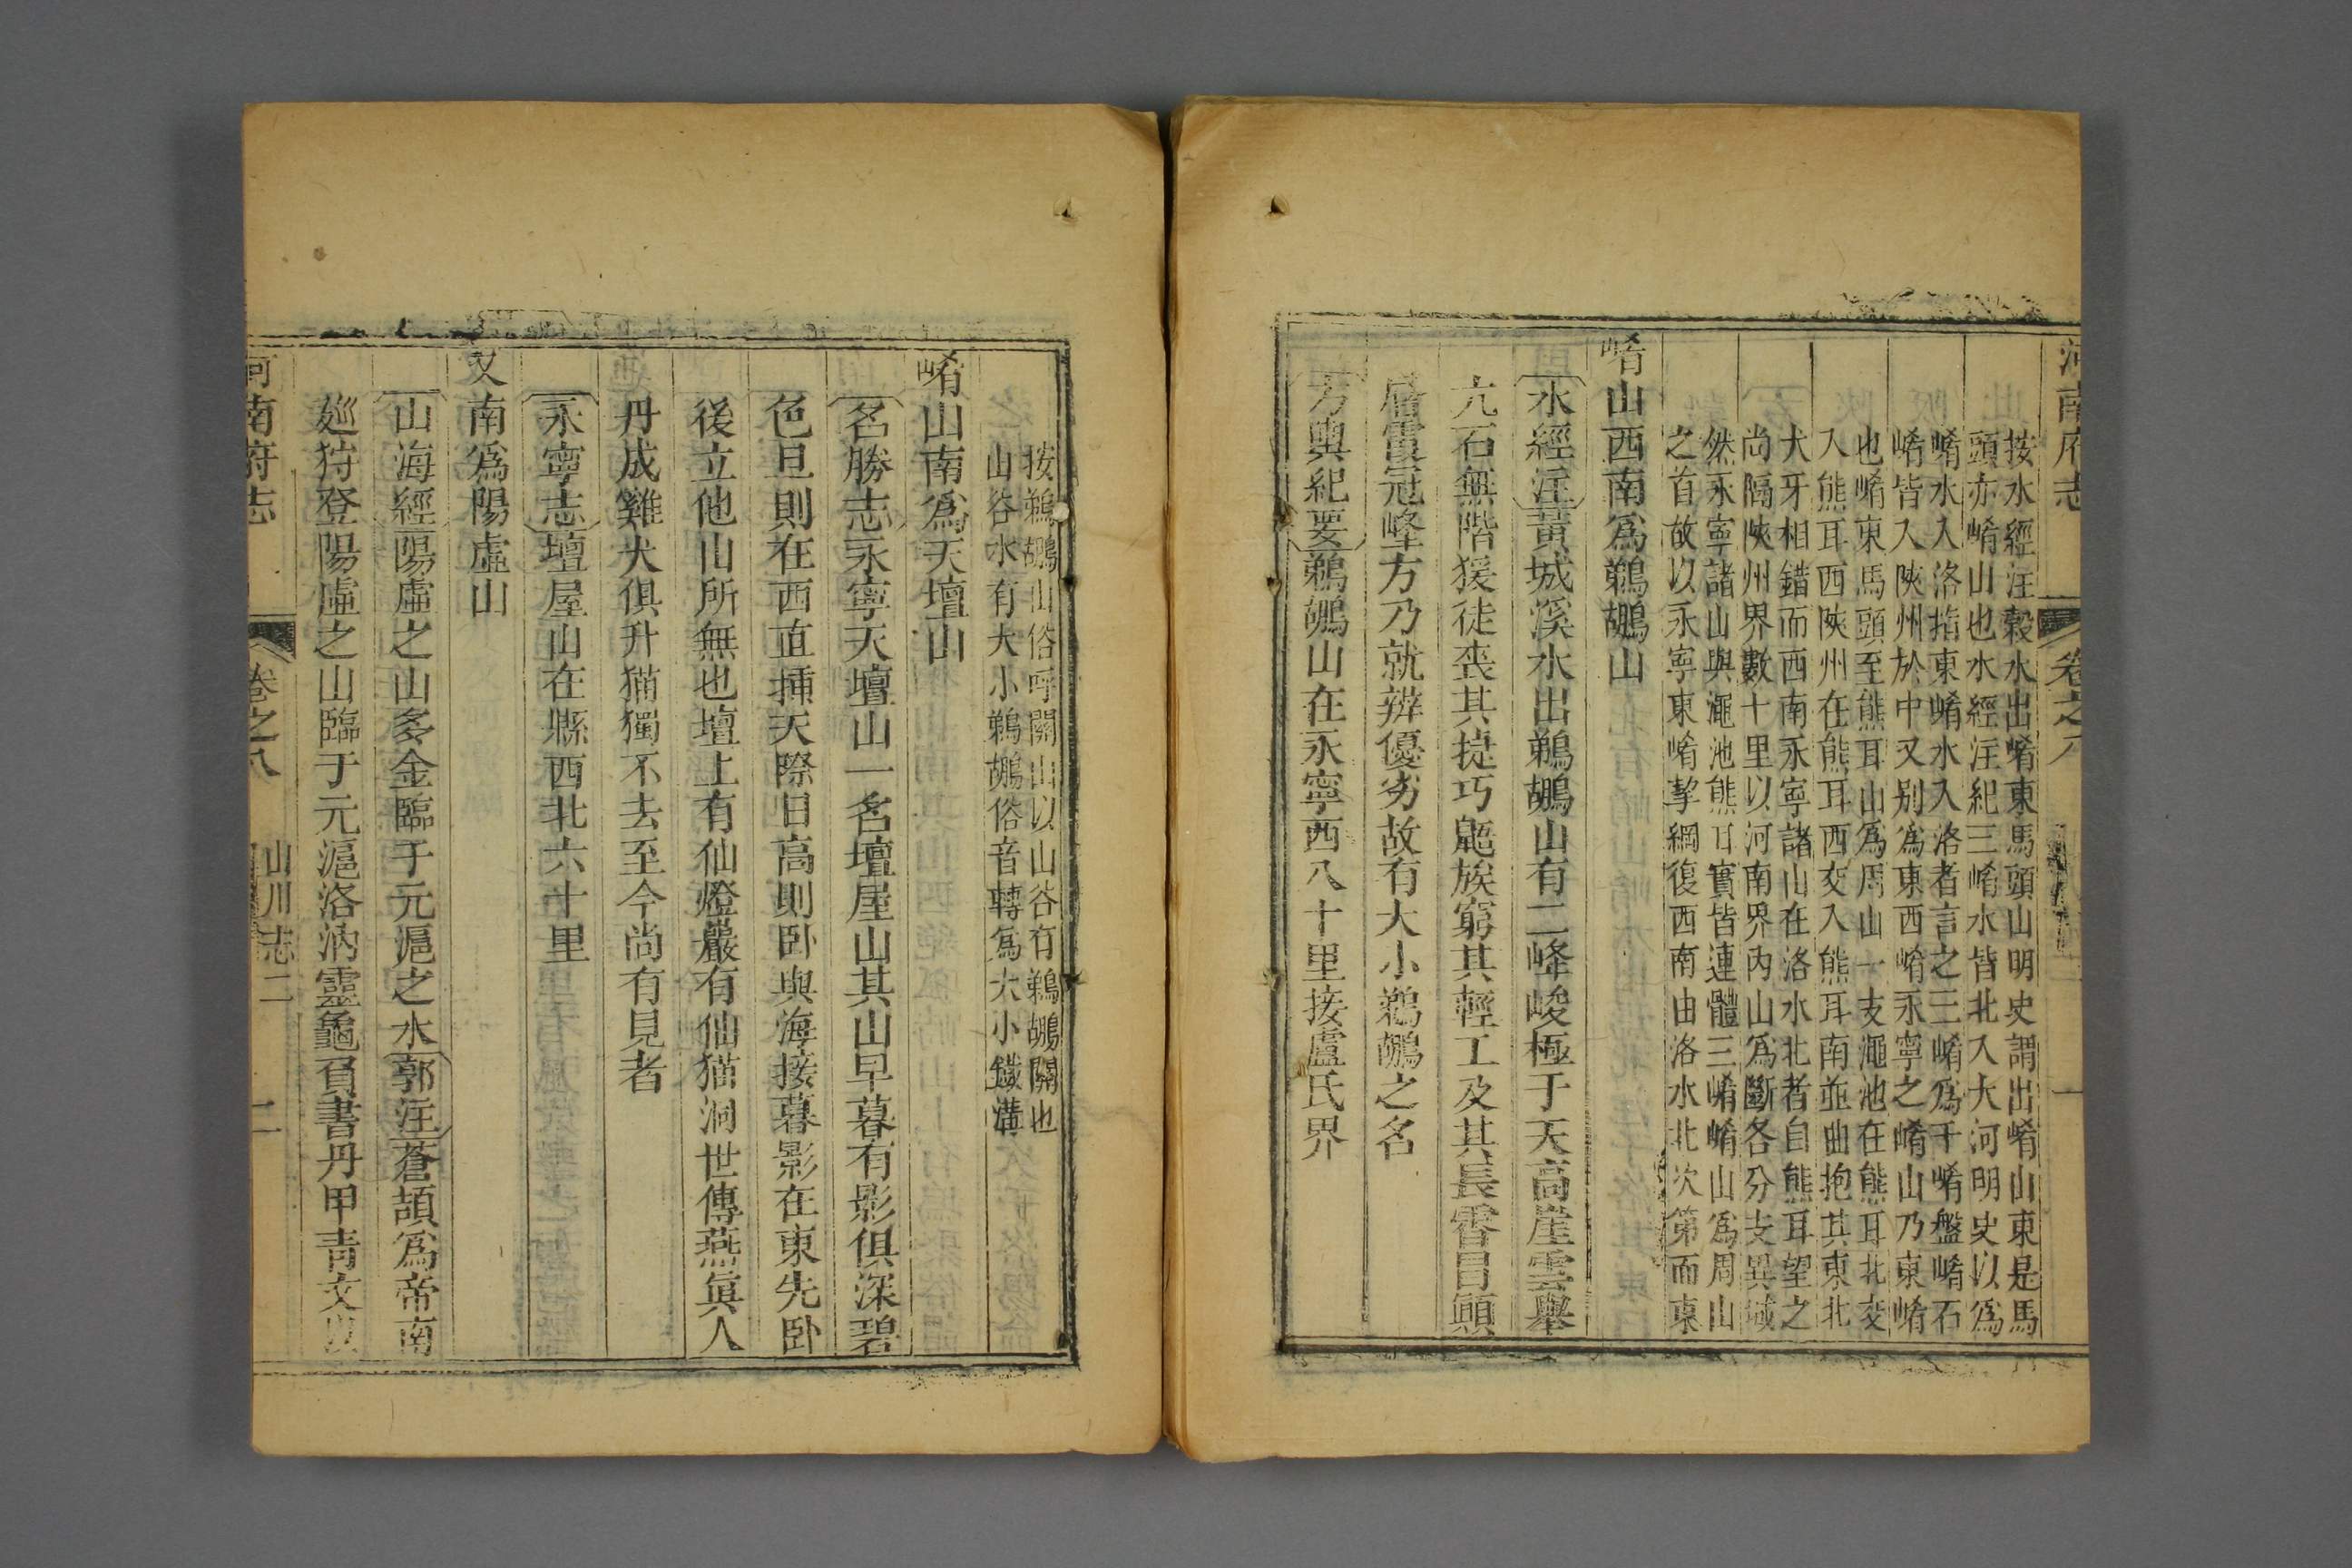 河南府志
卷之八
按水經注穀水出崤東馬頭山明史謂出崤山東是馬
頭亦崤山也水經注紀三崤水皆北入大河明史以爲
崤水入洛指東崤水入洛者言之三崤爲千崤盤崤石
崤皆入陝州於中又别爲東西崤永寧之崤山乃東崤
也崤東馬頭至熊耳山爲周山一支澠池在熊耳北交
入熊耳西陝州在熊耳西交入熊耳南並曲抱其東北
犬牙相錯而西南永寧諸山在洛水北者自熊耳望之
尚隔陝州界數十里以河南界内山爲斷各分支異域
然永寧諸山與澠池熊耳實皆連體三崤崤山爲周山
之首故以永寧東崤挈綱復西南由洛水北次第而東
崤山西南爲鵜鶘山
水經注黃城溪水出鵜鶘山有二峰峻極于天高崖雲舉
亢石無階猨徒喪其捷巧鼯族窮其輕工及其長霄冒巓
層霞冠峰方乃就辨優劣故有大小鵜鶘之名
方輿紀要鵜鶘山在永寧西八十里接盧氏界
按鵜鶘山俗呼關山以山谷有鵜鶘關也
山谷水有大小鵜鶘俗音轉爲大小鐵溝
崤山南爲天壇山
名勝志永寧天壇山一名壇屋山其山早暮有影俱深碧
色旦則在西直揷天際日高則卧與海接暮影在東先卧
後立他山所無也壇上有仙燈巖有仙猫洞世傳燕眞人
丹成雞犬俱升猫獨不去至今尚有見者
永寧志壇屋山在縣西北六十里
又南爲陽虛山
山海經陽虛之山多金臨于元滬之水郭注蒼頡爲帝南
廵狩登陽虛之山臨于元滬洛汭靈龜負書丹甲靑文以
河南府志
卷之八
山川志二
二